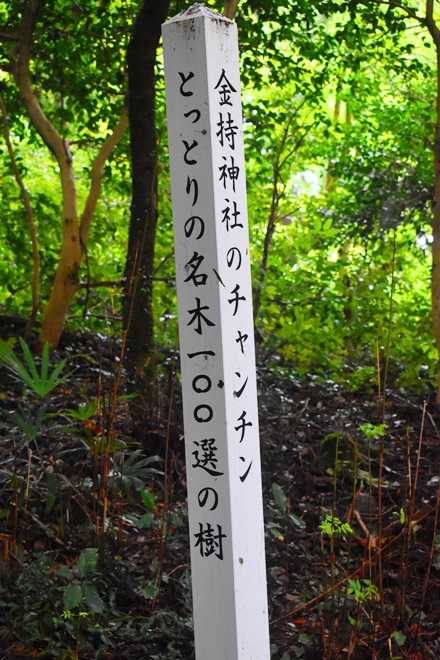 金持神社のチャンチン
とっとりの名木一〇〇選の樹